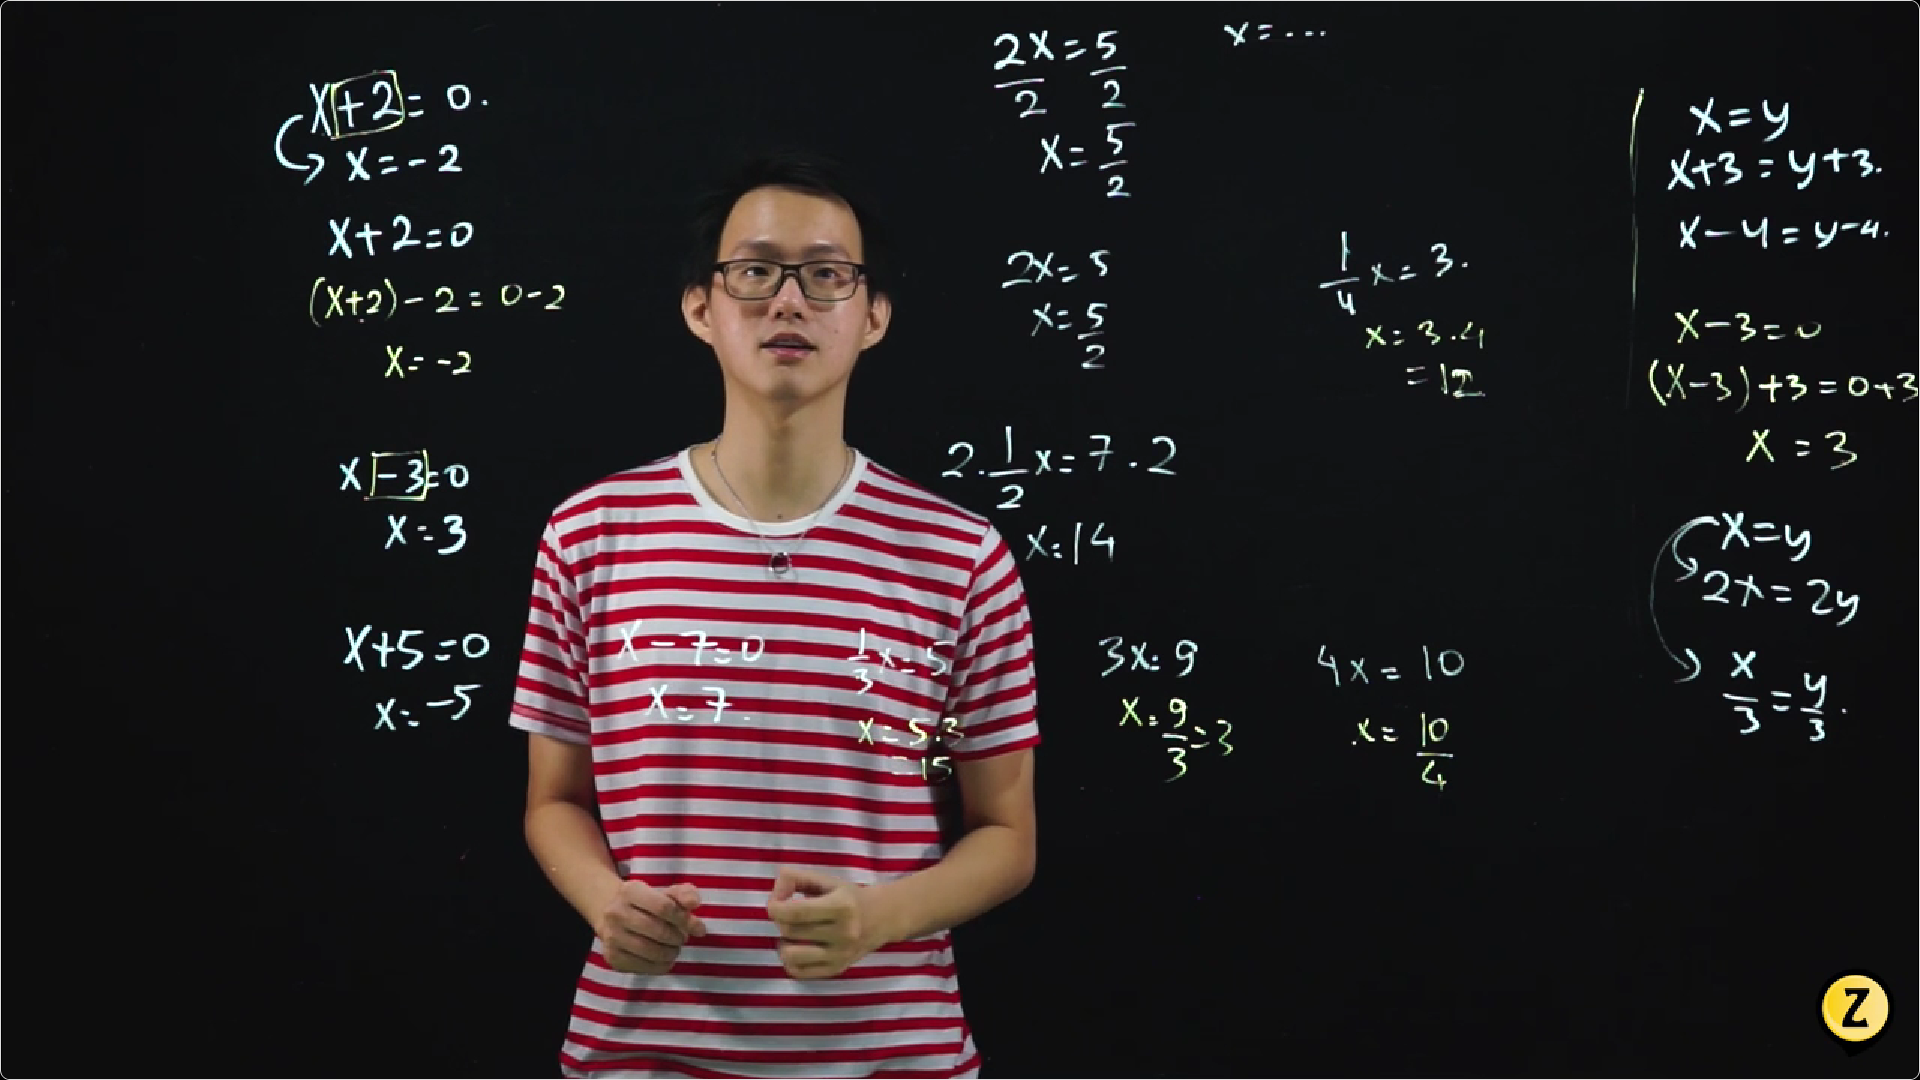 x+2=0.
x=-2
x+2=0
(x+2)-2=0-2
x=-2
x-3=0
x=3
x+5=0
x=-5
x-7=0
x=7.
1/3x=5
x=5.3
=15
2x/2=5/2
x=5/2
x=...
2x=5
x=5/2
2.1/2x=7.2
x=14
1/4x=3.
x=3.4
=12
3x=9
x=9/3=3
4x=10
x=10/4
x=y
x+3=y+3.
x-4=y-4.
x-3=0
(x-3)+3=0+3
x=3
x=y
2x=2y
x/3=y/3.
Z